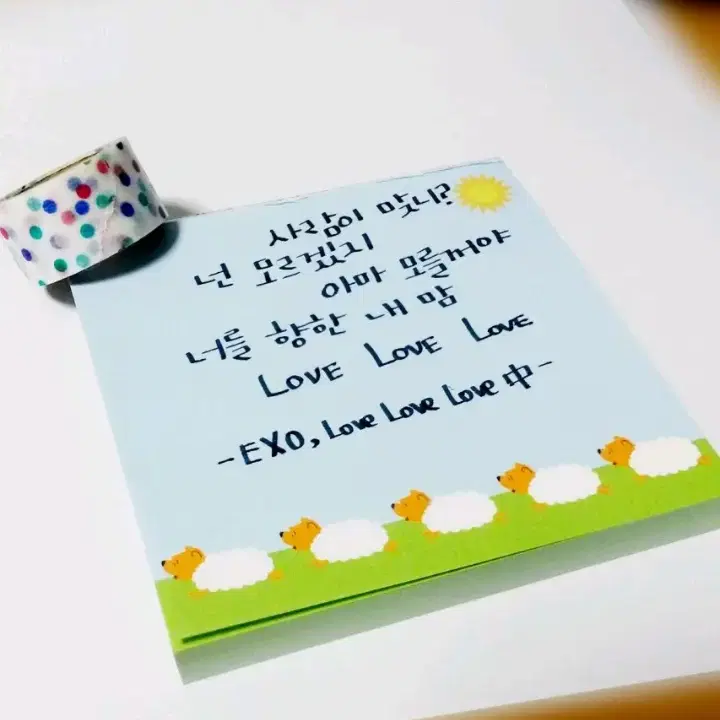 사람이 맞니?
넌 모르겠지
아마 모를꺼야
너를 향한 내 맘
LOVE LOVE LOVE
-EXO, Love Love Love 中-